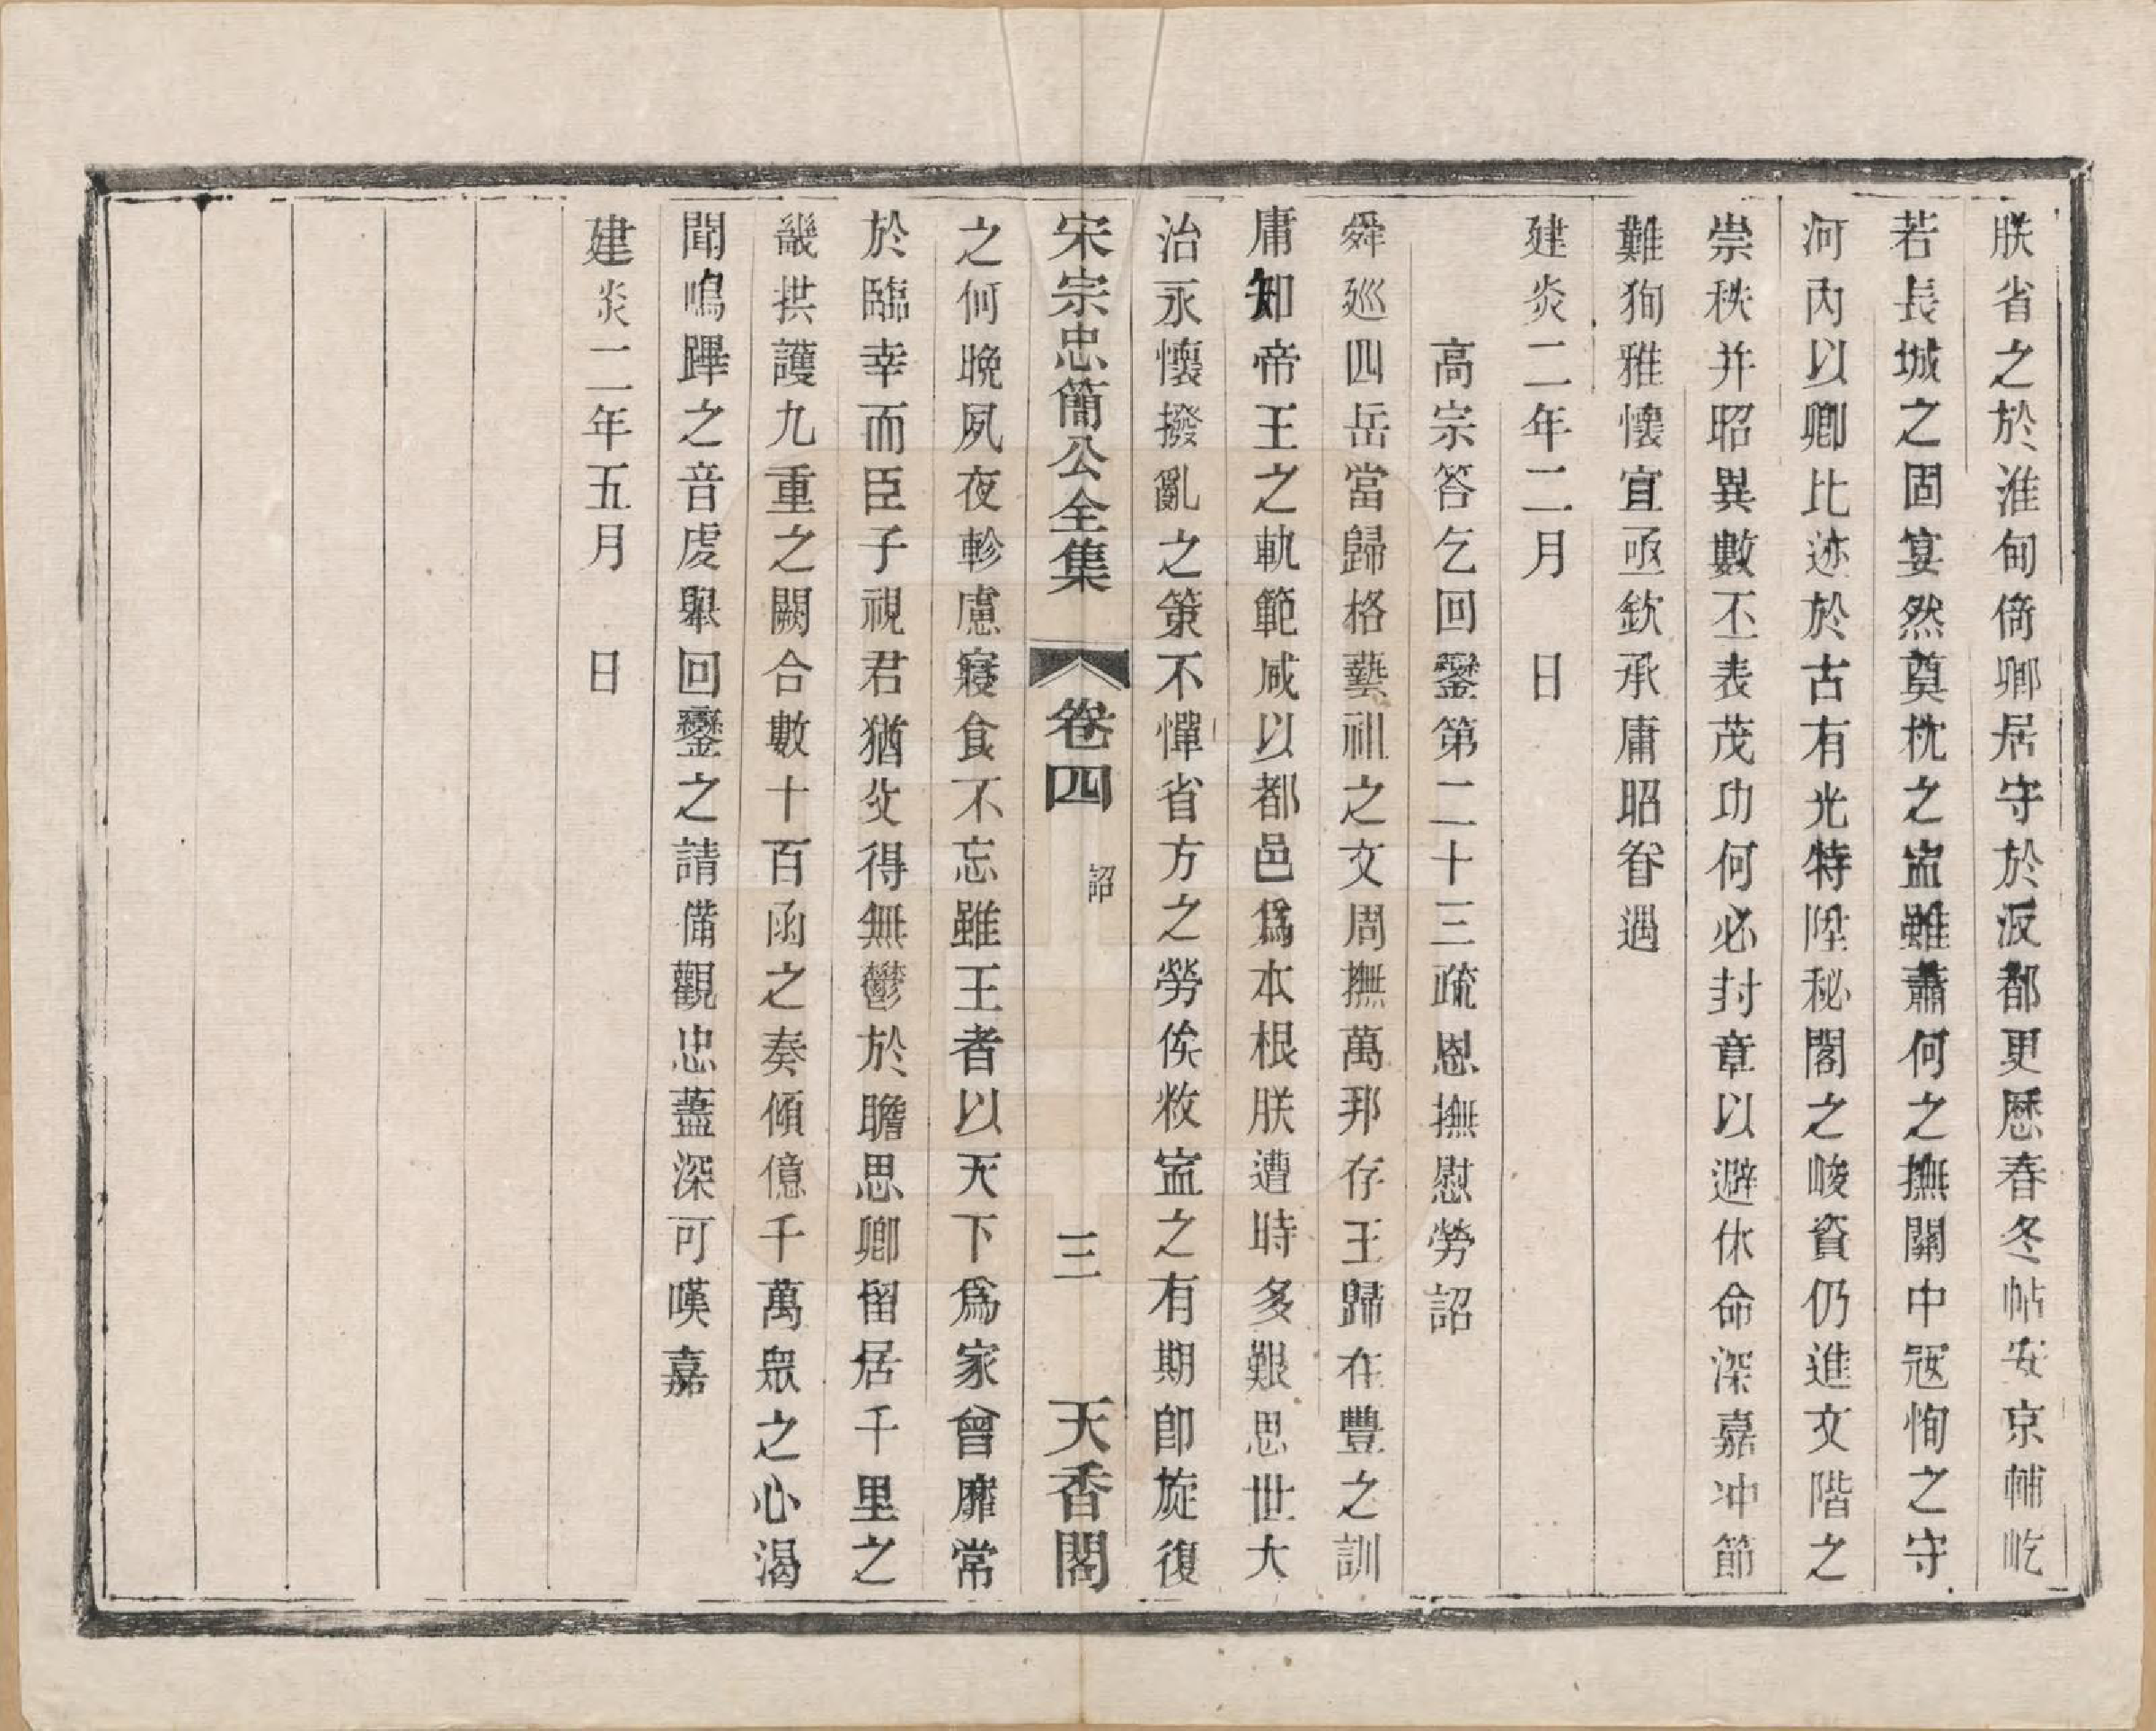 朕省之於淮甸倚卿居守於汳都更歷春冬帖安京輔屹
若長城之固宴然奠枕之寍雖蕭何之撫關中寇恂之守
河內以卿比迹於古有光特陞秘閣之峻資仍進文階之
崇秩并昭異數丕表茂功何必封章以避休命深嘉沖節
難徇雅懷宜亟欽承庸昭眷遇
建炎二年二月　日
高宗答乞回鑾第二十三疏恩撫慰勞詔
舜廵四岳當歸格藝祖之文周撫萬邦存王歸在豐之訓
庸知帝王之軌範咸以都邑爲本根朕遭時多艱思世大
治永懷撥亂之策不憚省方之勞俟敉寍之有期卽旋復
宋宗忠簡公全集　卷四　詔　三　天香閣
之何晚夙夜軫慮寢食不忘雖王者以天下爲家曾靡常
於臨幸而臣子視君猶父得無鬱於瞻思卿留居千里之
畿拱護九重之闕合數十百函之奏傾億千萬眾之心渴
聞鳴蹕之音虔舉回鑾之請備觀忠藎深可嘆嘉
建炎二年五月　日